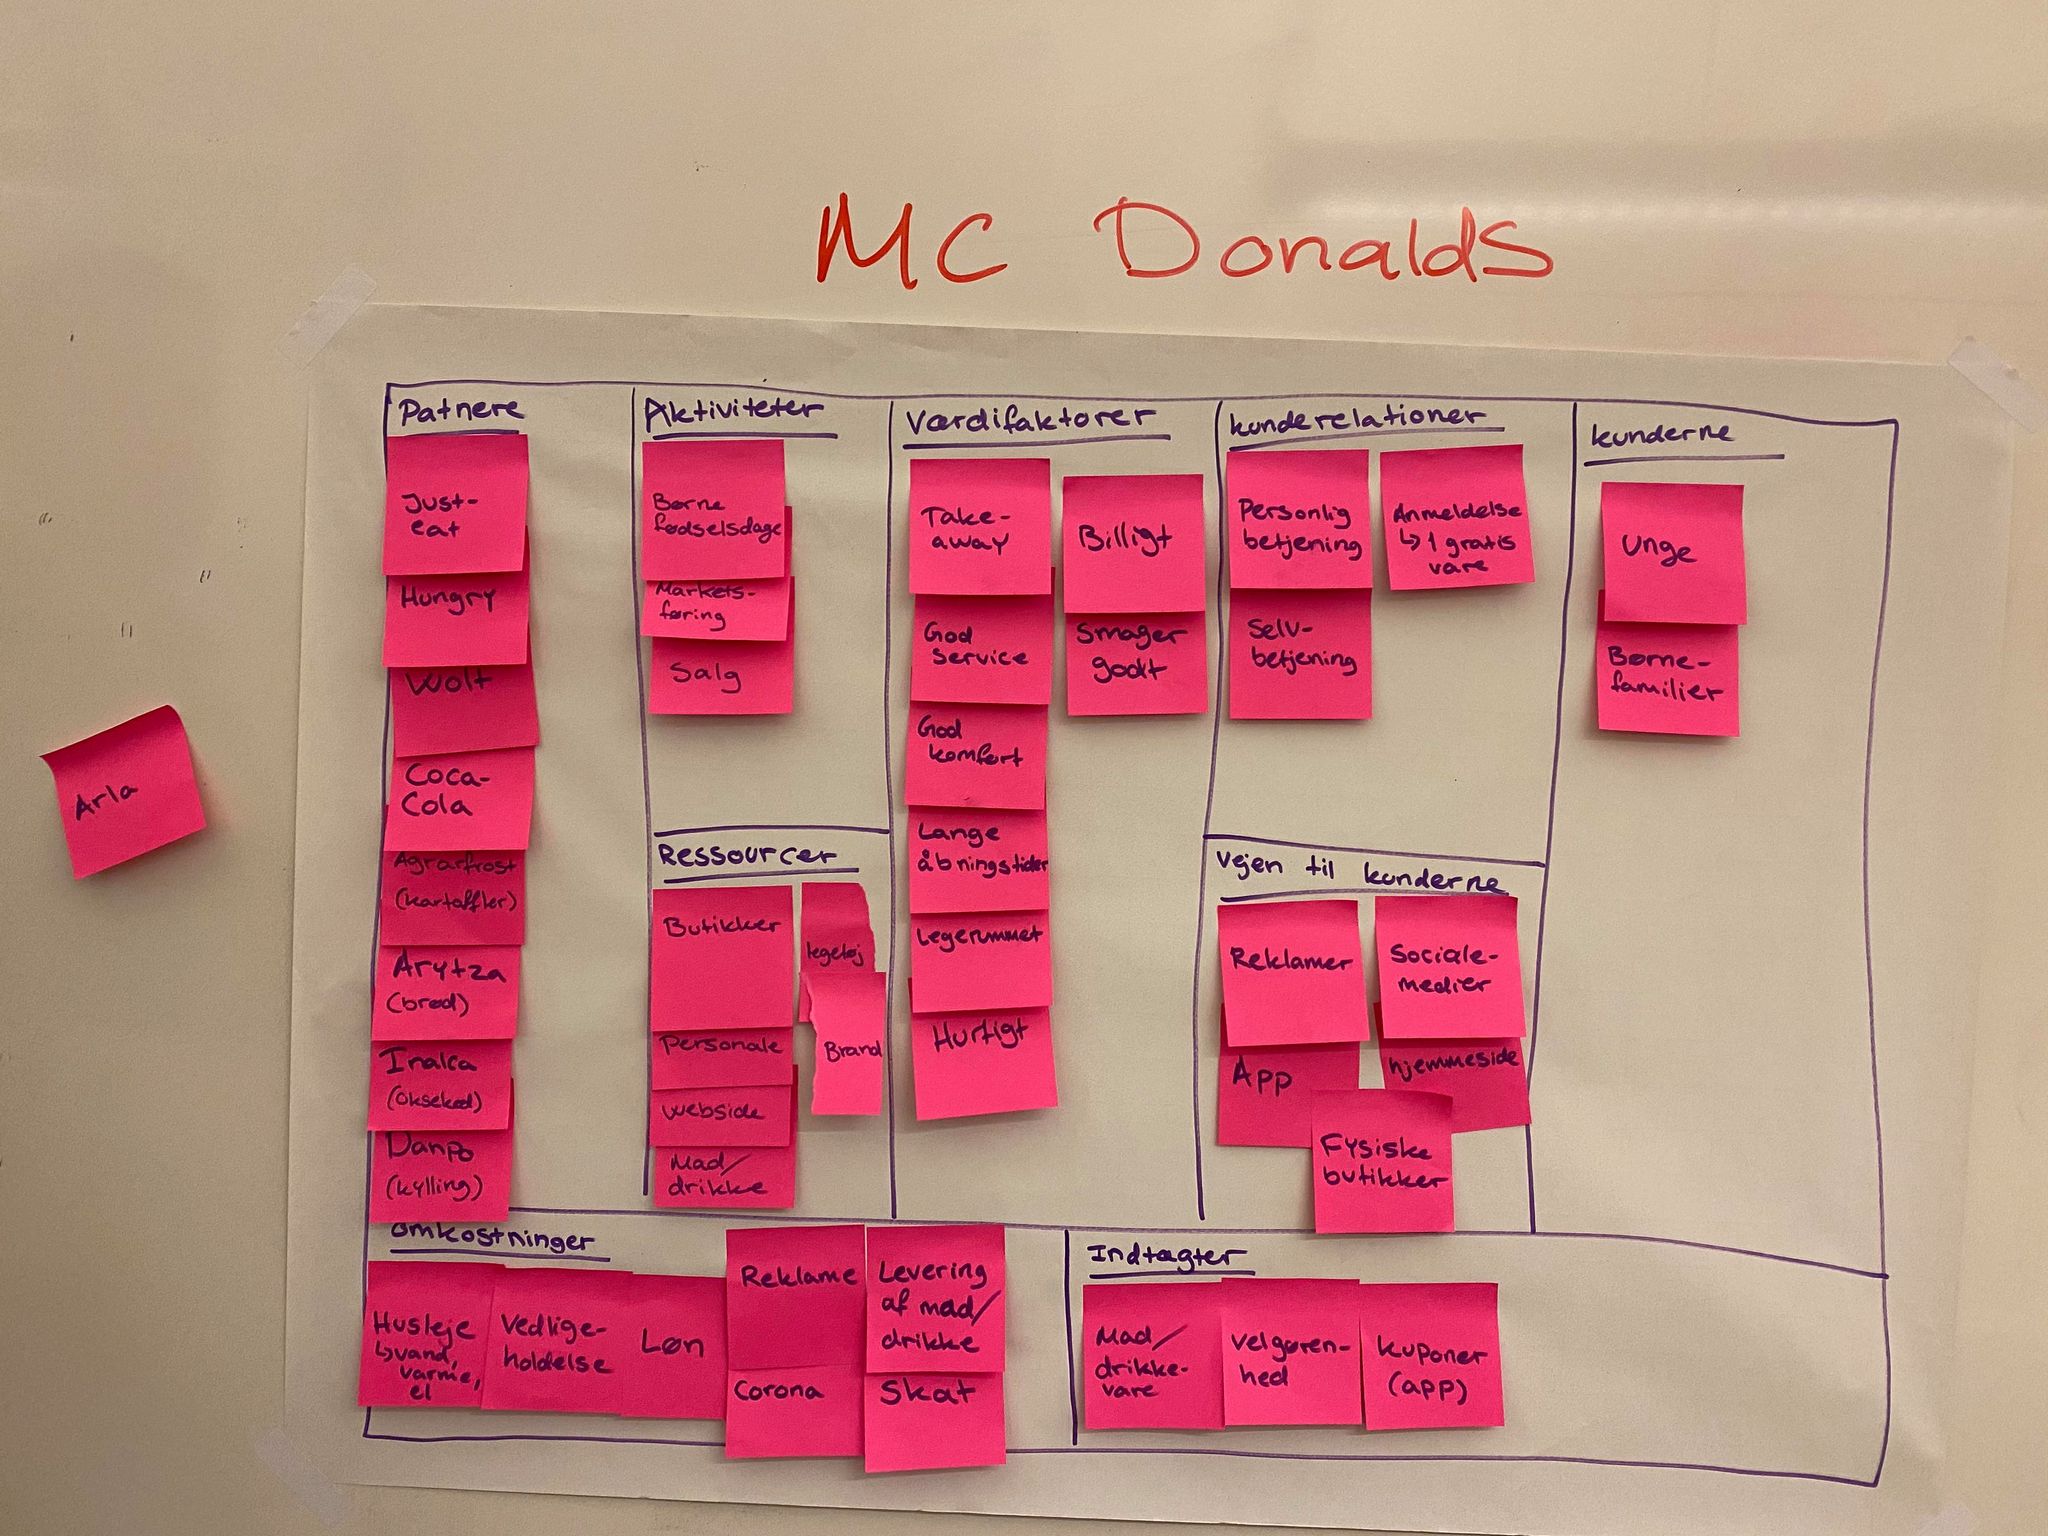 MC Donalds
Patnere
Just-
eat
Hungry
Wolt
Coca-
Cola
Agrarfrost
(kartoffler)
Arytza
(brød)
Inalca
(oksekød)
Danpo
(kylling)
Arla
Aktiviteter
Børne
fødselsdage
Markets-
føring
Salg
Ressourcer
Butikker
legetøj
Brand
Personale
webside
Mad/
drikke
Værdifaktorer
Take-
away
God
service
God
komfort
Lange
åbningstider
Legerummet
Hurtigt
Billigt
Smager
godt
kunderelationer
Personlig
betjening
Selv-
betjening
Anmeldelse
↳ 1 gratis
vare
Vejen til kunderne
Reklamer
Sociale-
medier
App
hjemmeside
Fysiske
butikker
kunderne
Unge
Børne-
familier
Omkostninger
Husleje
↳ vand,
varme,
el
Vedlige-
holdelse
Løn
Reklame
Corona
Levering
af mad/
drikke
Skat
Indtægter
Mad/
drikke-
vare
Velgøren-
hed
kuponer
(app)